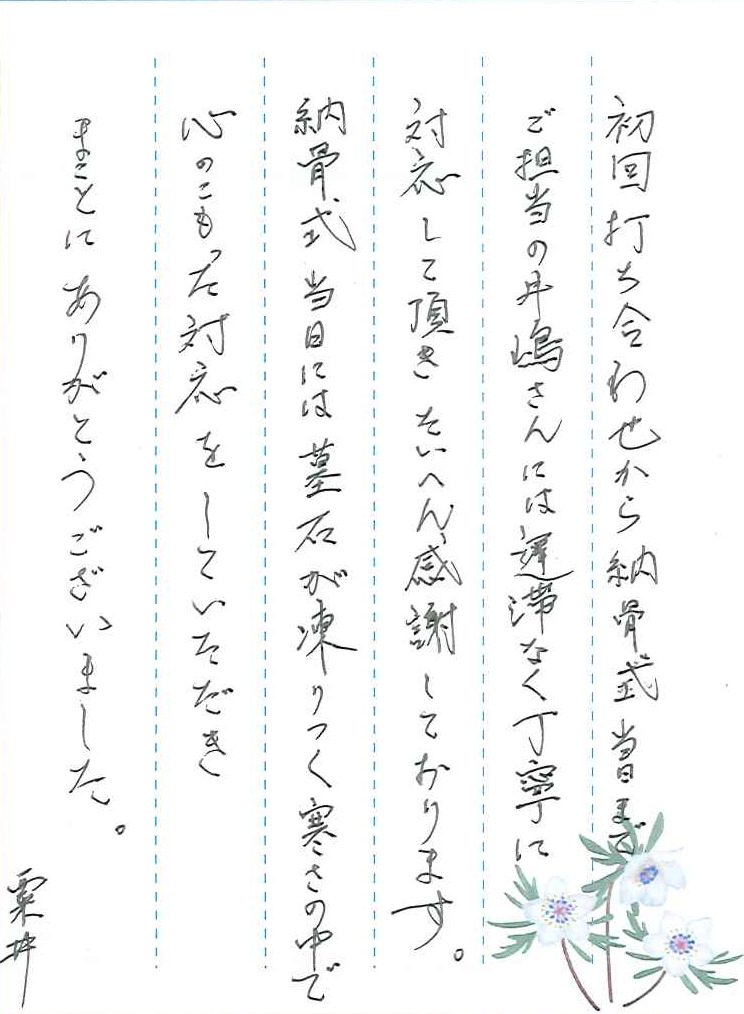 初回打ち合わせから納骨式当日まで
ご担当の丹嶋さんには遅滞なく丁寧に
対応して頂きたいへん感謝しております。
納骨式当日には墓石が凍りつく寒さの中で
心のこもった対応をしていただき
まことにありがとうございました。
粟井